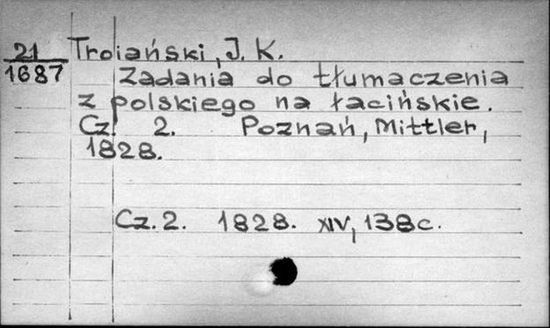 21 Troiański, J. K.
1687 Zadania do tłumaczenia
z polskiego na łacińskie.
Cz. 2. Poznań, Mittler,
1828.
Cz. 2. 1828. XIV, 138 c.